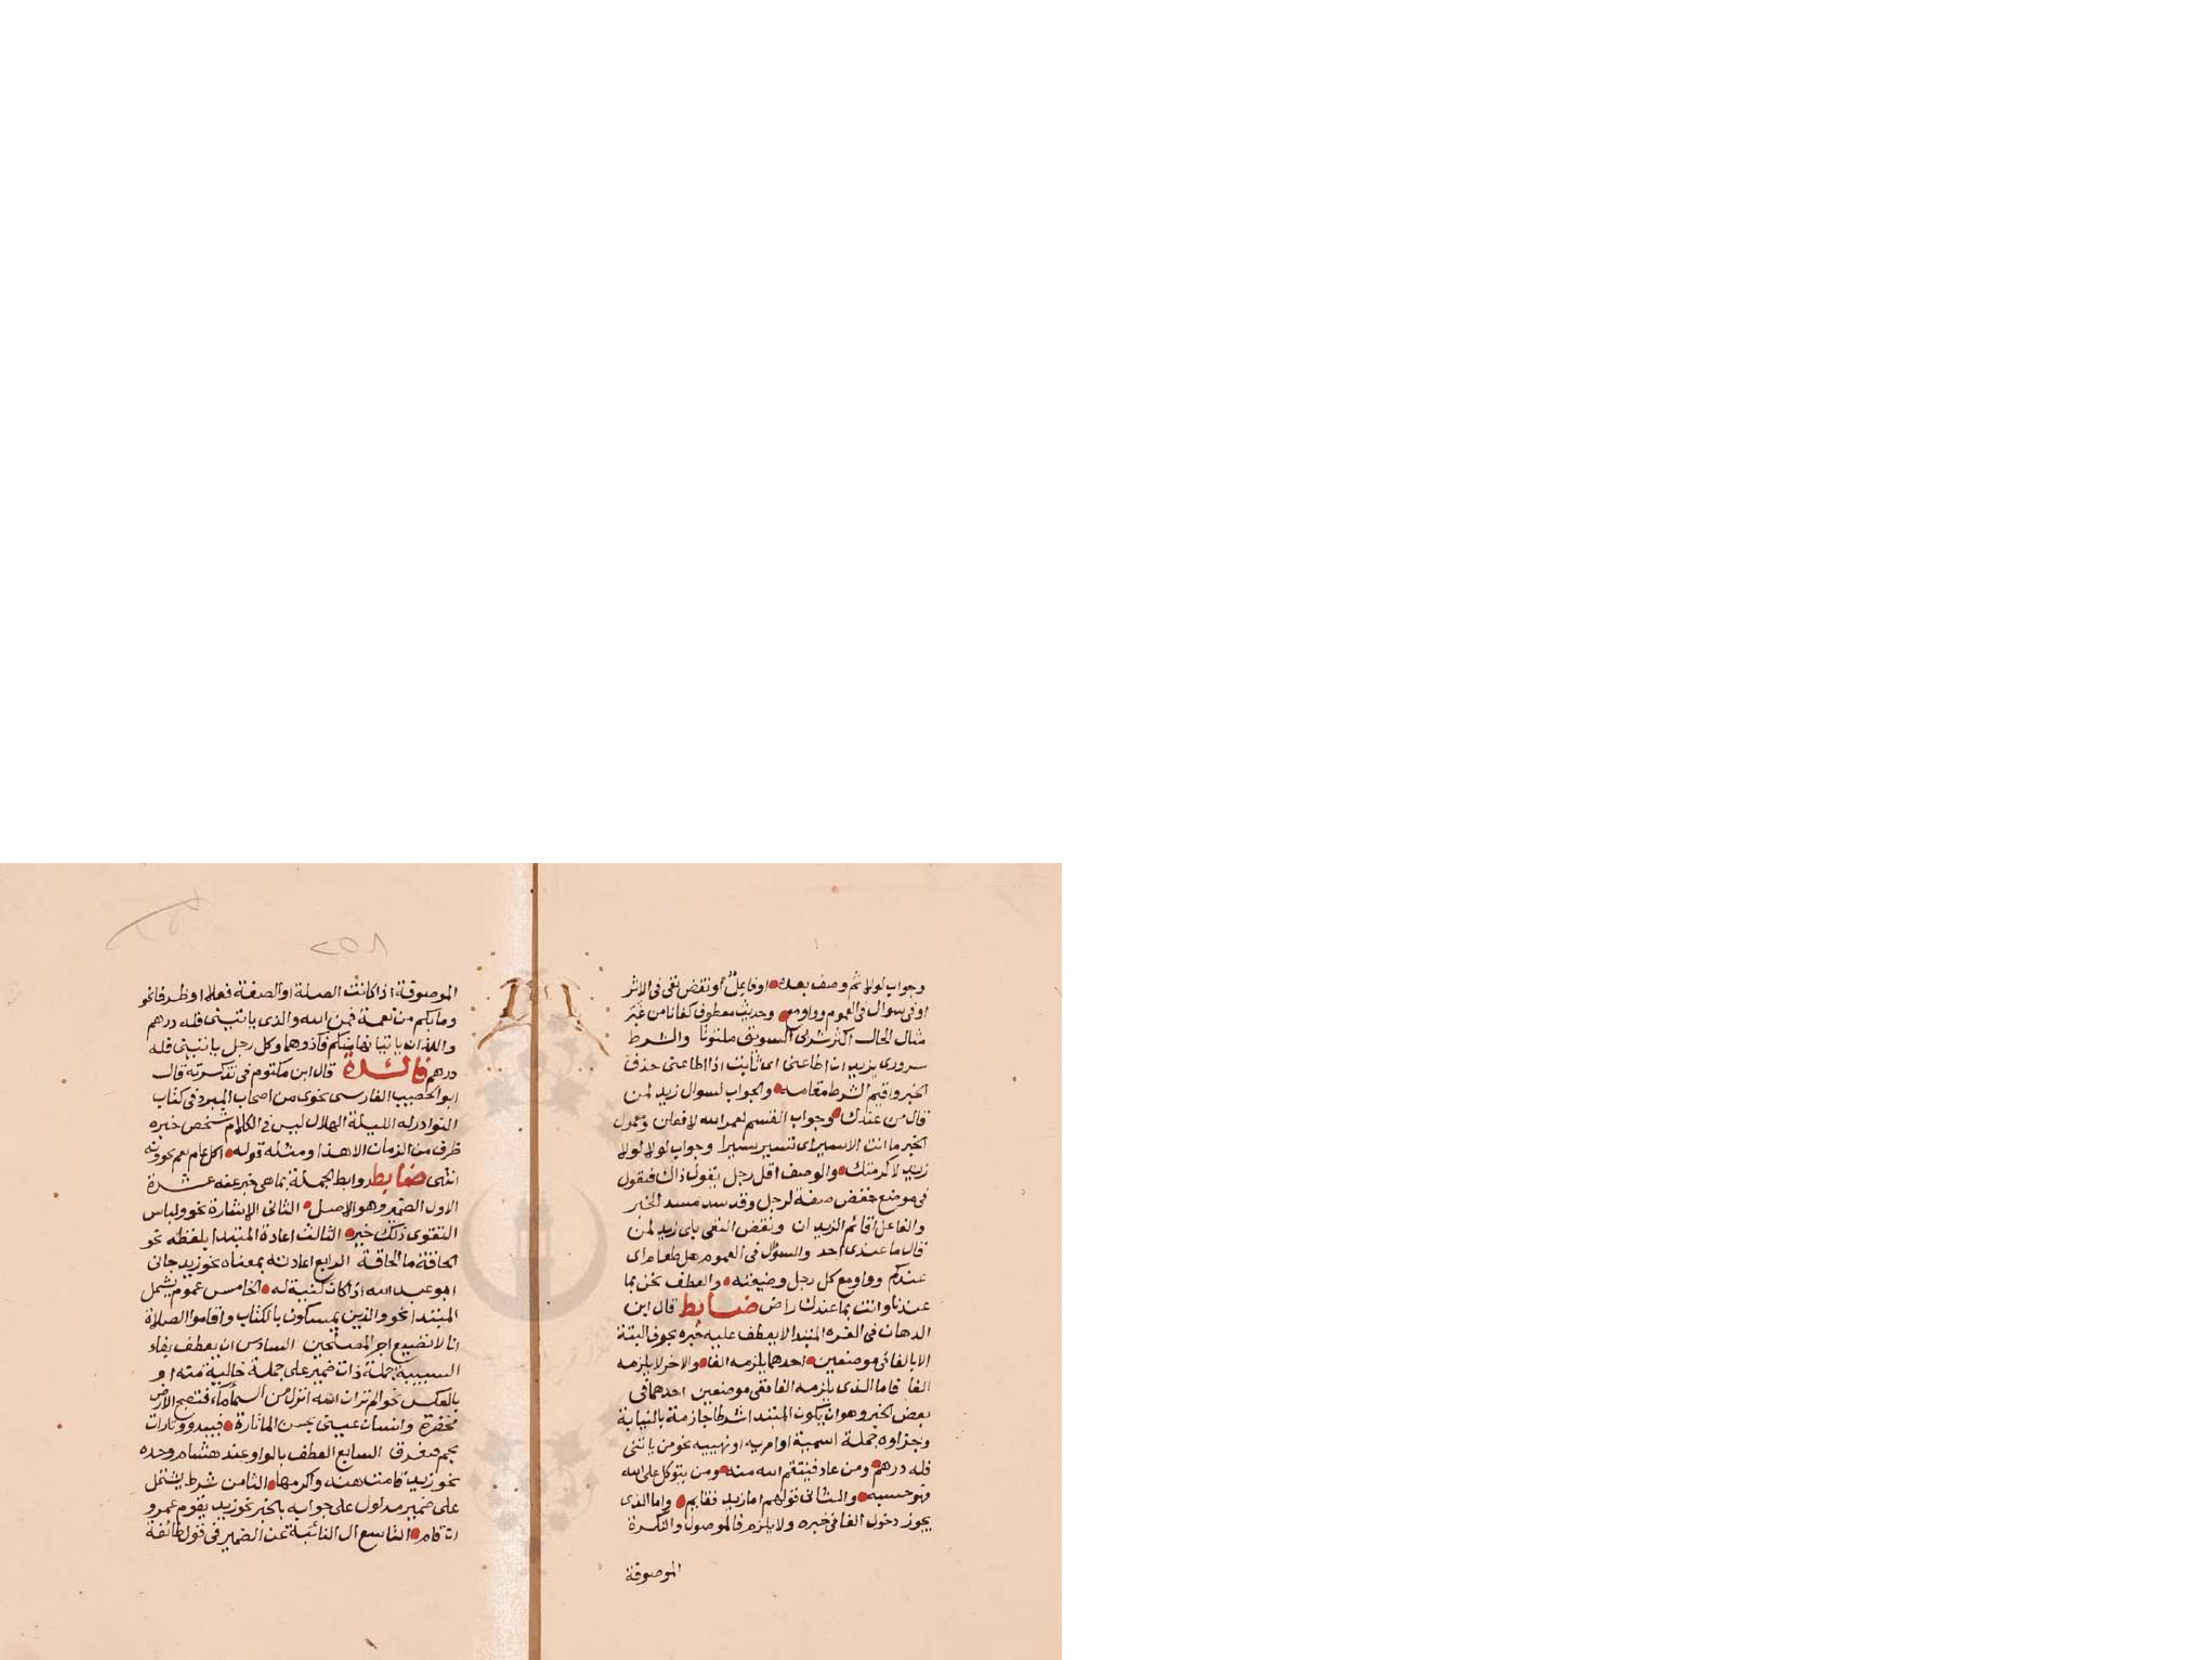 وجواب لولا ثم وصف بعده او فاعل او نقض نفى فى الاثر
او فى سوال فى العموم وواو مع وحديث معطوف كفانا من غبر
مثال الحال اكثر شربى السويق ملتوتا والشرط
سرورى بزيد ان اطاعنى اى ثابت اذا اطاعنى حذف
الخبر واقيم الشرط مقامه والجواب لسوال زيد لمن
قال من عندك وجواب القسم لعمر الله لافعلن ومعمول
الخبر ما انت الا سيرا اى تسير سيرا وجواب لولا لولا
زيد لاكرمتك والوصف اقل رجل يقول ذاك فيقول
فى موضع خفض صفة لرجل وقد سد مسد الخبر
والفاعل اقائم الزيدان ونقض النفى بلى زيد لمن
قال ما عندى احد والسؤال فى العموم هل طعام اى
عندكم وواو مع كل رجل وضيعته والعطف نحن بما
عندنا وانت بما عندك راض ضابط قال ابن
الدهان فى الغره المبتدا لا يعطف عليه خبره بحرف البتة
الا بالفا فى موضعين احدهما يلزمه الفا والاخر لا يلزمه
الفا فاما الذى يلزمه الفا ففى موضعين احدهما فى
بعض الخبر وهو ان يكون المبتدا شرطا جازمة بالنيابة
وجزاوه جملة اسمية او امريه او نهييه نحو من ياتنى
فله درهم ومن عاد فينتقم الله منه ومن يتوكل على الله
فهو حسبه والثانى قولهم اما زيد فقايم واما الذى
يجوز دخول الفا فى خبره ولا يلزم فالموصول والنكرة
الموصوفة
٢٥٨
الموصوفة اذا كانت الصلة او الصفة فعلا او ظرفا نحو
وما بكم من نعمة فمن الله والذى ياتينى فله درهم
واللذان ياتيانها منكم فاذوهما وكل رجل ياتينى فله
درهم فائدة قال ابن مكتوم فى تذكرته قال
ابو الخصيب الفارسى نحوى من اصحاب المبرد فى كتاب
النوادر له الليلة الهلال ليس فى الكلام شخص خبره
ظرف من الزمان الا هذا ومثله قوله اكل عام نعم تحوونه
انتهى ضابط روابط الجملة بما هى خبر عنه عشرة
الاول الضمير وهو الاصل الثانى الاشارة نحو ولباس
التقوى ذلك خير الثالث اعادة المبتدا بلفظه نحو
الحاقة ما الحاقة الرابع اعادته بمعناه نحو زيد جانى
ابو عبد الله اذا كان كنية له الخامس عموم يشمل
المبتدا نحو والذين يمسكون بالكتاب واقاموا الصلاة
انا لا نضيع اجر المصلحين السادس ان يعطف بفاء
السببية جملة ذات ضمير على جملة خالية منه او
بالعكس نحو الم تر ان الله انزل من السماء ماء فتصبح الارض
مخضرة وانسان عينى يحسر الما تارة فيبدو وتارات
يجم فيغرق السابع العطف بالواو عند هشام وحده
نحو زيد قامت هند واكرمها الثامن شرط يشتمل
على ضمير مدلول على جوابه بالخبر نحو زيد يقوم عمرو
ان قام التاسع ال النائبة عن الضمير فى قول طائفة